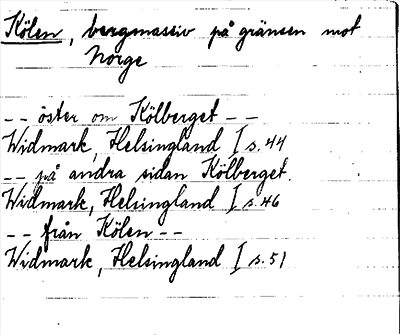 Kölen, bergmassiv på gränsen mot
Norge
-- öster om Kölberget --
Widmark, Helsingland I s. 44
-- på andra sidan Kölberget.
Widmark, Helsingland I s. 46
-- från Kölen --
Widmark, Helsingland I s. 51